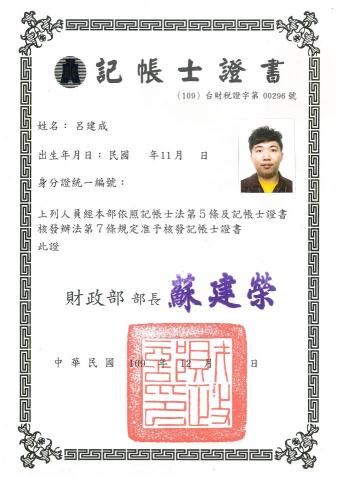 記帳士證書
(109) 台財稅證字第 00296 號
姓名：呂建成
出生年月日：民國 年11月 日
身分證統一編號：
上列人員經本部依照記帳士法第5條及記帳士證書
核發辦法第7條規定准予核發記帳士證書
此證
財政部 部長 蘇建榮
中華民國 109 年 12 月 日
財政部印